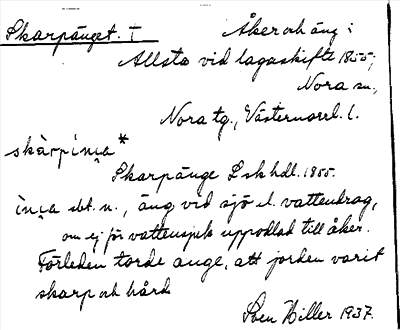 Skarpänget. I
Åker och äng i
Allsta vid lagaskifte 1855;
Nora sn.,
Nora tg., Västernorrl. l.
skàrpinıa *
Skarpänge Lskhdl. 1855.
ìnıa sbt. n., äng vid sjö el. vattendrag,
om ej för vattensjuk uppodlad till åker.
Förleden torde ange, att jorden varit
skarp och hård
Sven Hiller 1937.